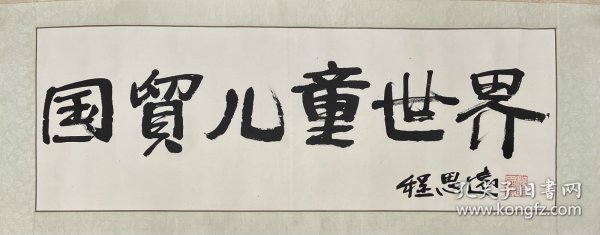 国貿儿童世界
程思遠
孔夫子旧书网
www.kongfz.com